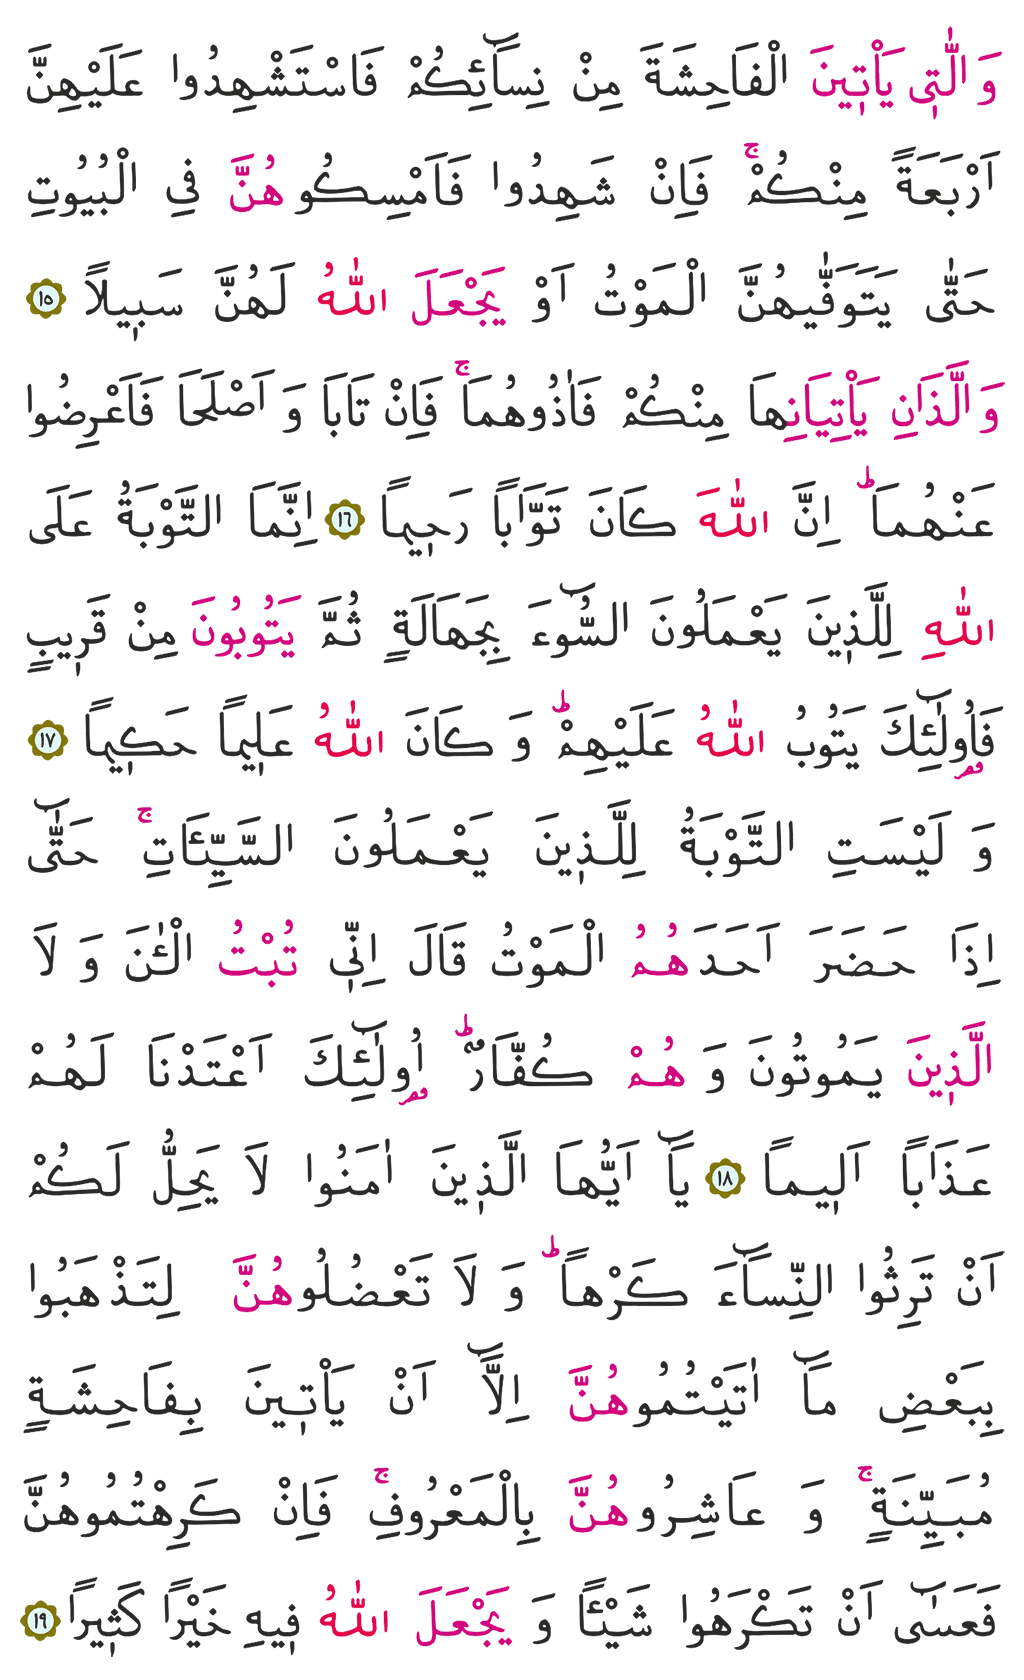 وَ الّٰتٖى يَاْتٖينَ الْفَاحِشَةَ مِنْ نِسَٓائِكُمْ فَاسْتَشْهِدُوا عَلَيْهِنَّ
اَرْبَعَةً مِنْكُمْۚ فَاِنْ شَهِدُوا فَاَمْسِكُوهُنَّ فِى الْبُيُوتِ
حَتّٰى يَتَوَفّٰيهُنَّ الْمَوْتُ اَوْ يَجْعَلَ اللّٰهُ لَهُنَّ سَبٖيلاً ١٥
وَ الَّذَانِ يَاْتِيَانِهَا مِنْكُمْ فَاٰذُوهُمَاۚ فَاِنْ تَابَا وَ اَصْلَحَا فَاَعْرِضُوا
عَنْهُمَاؕ اِنَّ اللّٰهَ كَانَ تَوَّاباً رَحٖيماً ١٦ اِنَّمَا التَّوْبَةُ عَلَى
اللّٰهِ لِلَّذٖينَ يَعْمَلُونَ السُّٓوءَ بِجَهَالَةٍ ثُمَّ يَتُوبُونَ مِنْ قَرٖيبٍ
فَاُو۬لٰٓئِكَ يَتُوبُ اللّٰهُ عَلَيْهِمْؕ وَ كَانَ اللّٰهُ عَلٖيماً حَكٖيماً ١٧
وَ لَيْسَتِ التَّوْبَةُ لِلَّذٖينَ يَعْمَلُونَ السَّيِّـَٔاتِۚ حَتّٰٓى
اِذَا حَضَرَ اَحَدَهُمُ الْمَوْتُ قَالَ اِنّٖى تُبْتُ الْـٰٔنَ وَ لَا
الَّذٖينَ يَمُوتُونَ وَ هُمْ كُفَّارٌؕ اُو۬لٰٓئِكَ اَعْتَدْنَا لَهُمْ
عَذَاباً اَلٖيماً ١٨ يَٓا اَيُّهَا الَّذٖينَ اٰمَنُوا لَا يَحِلُّ لَكُمْ
اَنْ تَرِثُوا النِّسَٓاءَ كَرْهاًؕ وَ لَا تَعْضُلُوهُنَّ لِتَذْهَبُوا
بِبَعْضِ مَٓا اٰتَيْتُمُوهُنَّ اِلَّٓا اَنْ يَاْتٖينَ بِفَاحِشَةٍ
مُبَيِّنَةٍۚ وَ عَاشِرُوهُنَّ بِالْمَعْرُوفِۚ فَاِنْ كَرِهْتُمُوهُنَّ
فَعَسٰٓى اَنْ تَكْرَهُوا شَيْـٔاً وَ يَجْعَلَ اللّٰهُ فٖيهِ خَيْراً كَثٖيراً ١٩